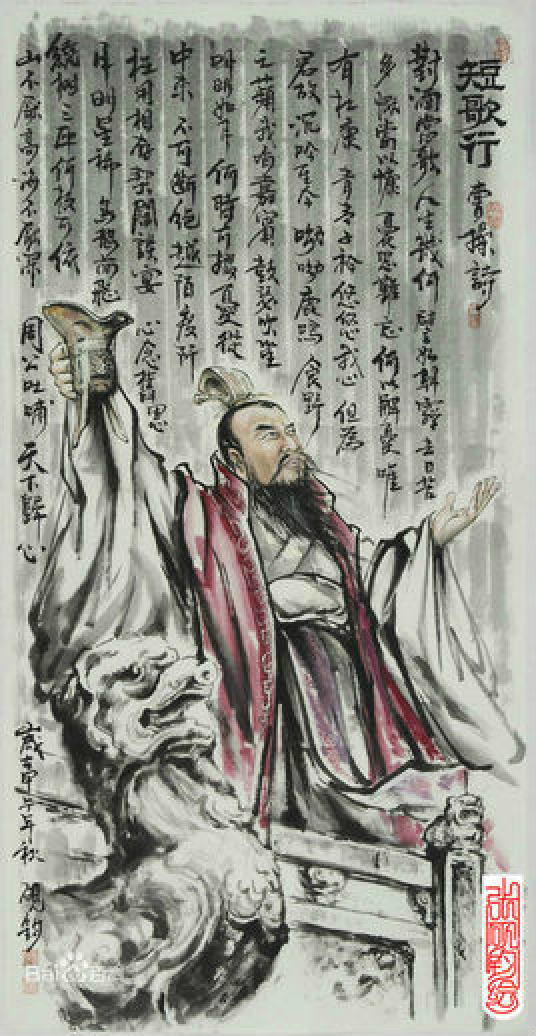 短歌行
曹操詩
對酒當歌 人生幾何 譬如朝露 去日苦
多 慨當以慷 憂思難忘 何以解憂 唯
有杜康 青青子衿 悠悠我心 但為
君故 沉吟至今 呦呦鹿鳴 食野
之蘋 我有嘉賓 鼓瑟吹笙
明明如月 何時可掇 憂從
中來 不可斷絕 越陌度阡
枉用相存 契闊談宴 心念舊恩
月明星稀 烏鵲南飛
繞樹三匝 何枝可依
山不厭高 海不厭深
周公吐哺 天下歸心
午年秋 硯鈞
Bai百科